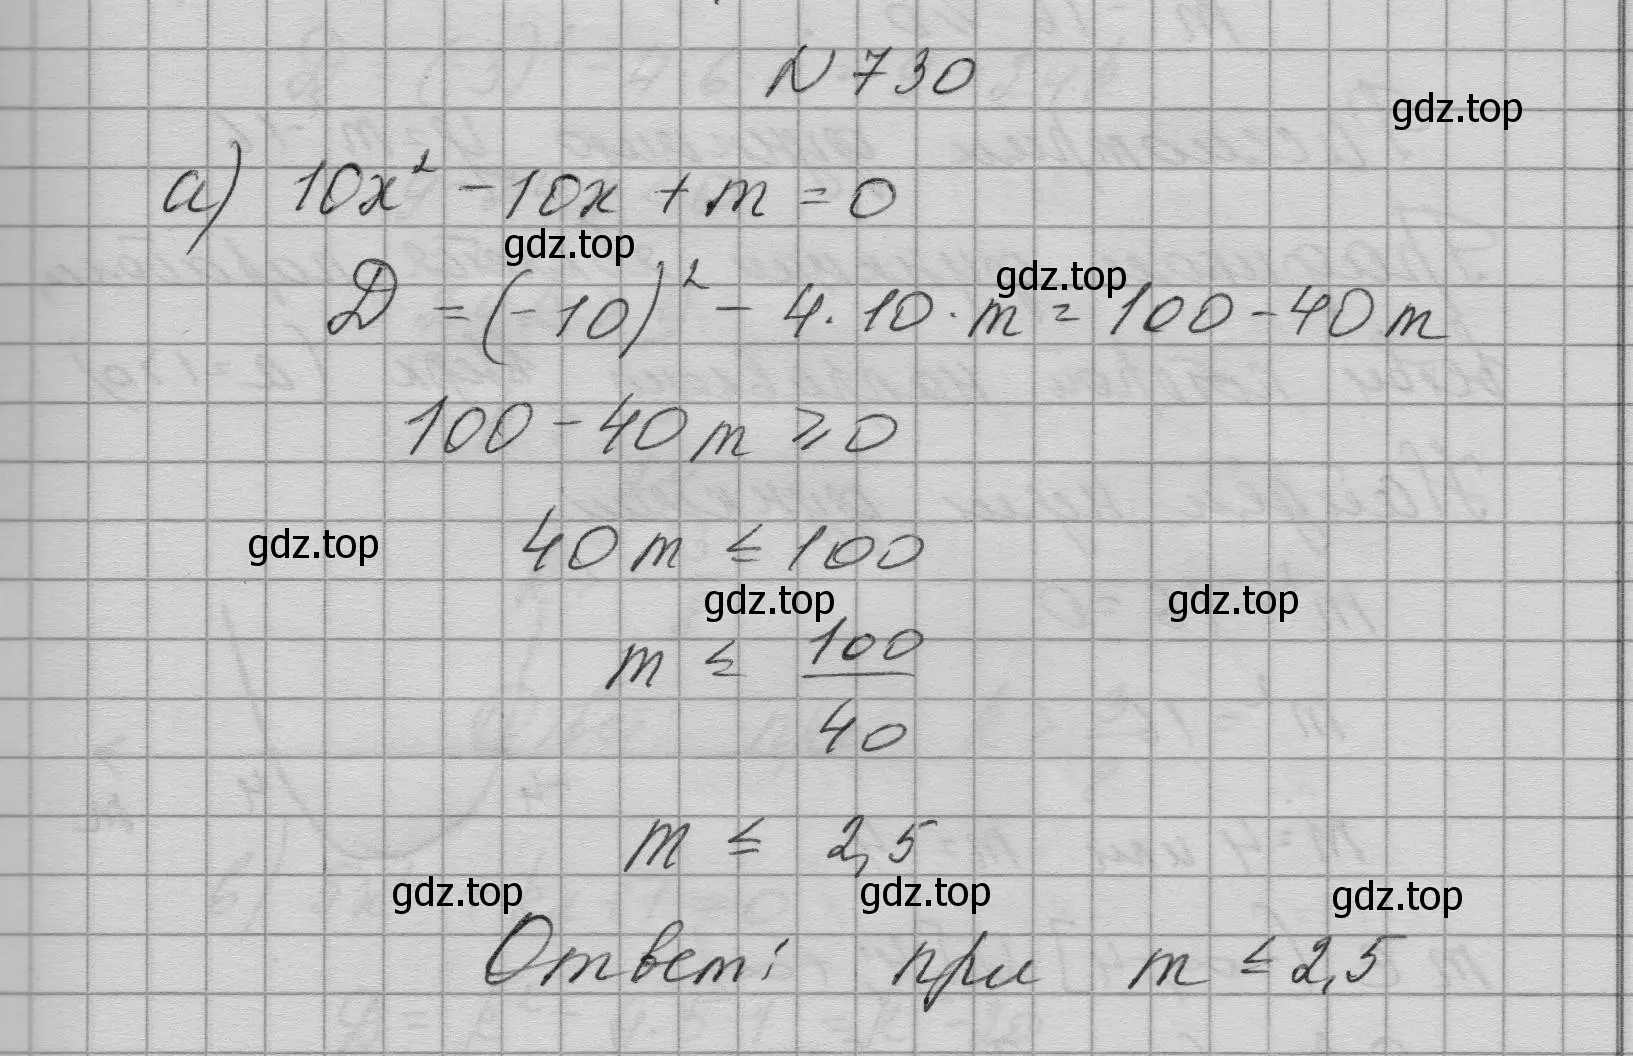 N 730
gdz.top
а) 10x² - 10x + m = 0
gdz.top
gdz.top
D = (-10)² - 4·10·m = 100 - 40m
100 - 40m ⩾ 0
gdz.top
40m ≤ 100
gdz.top
gdz.top
m ≤ 100/40
m ≤ 2,5
gdz.top
gdz.top
gdz.top
Ответ: при m ≤ 2,5